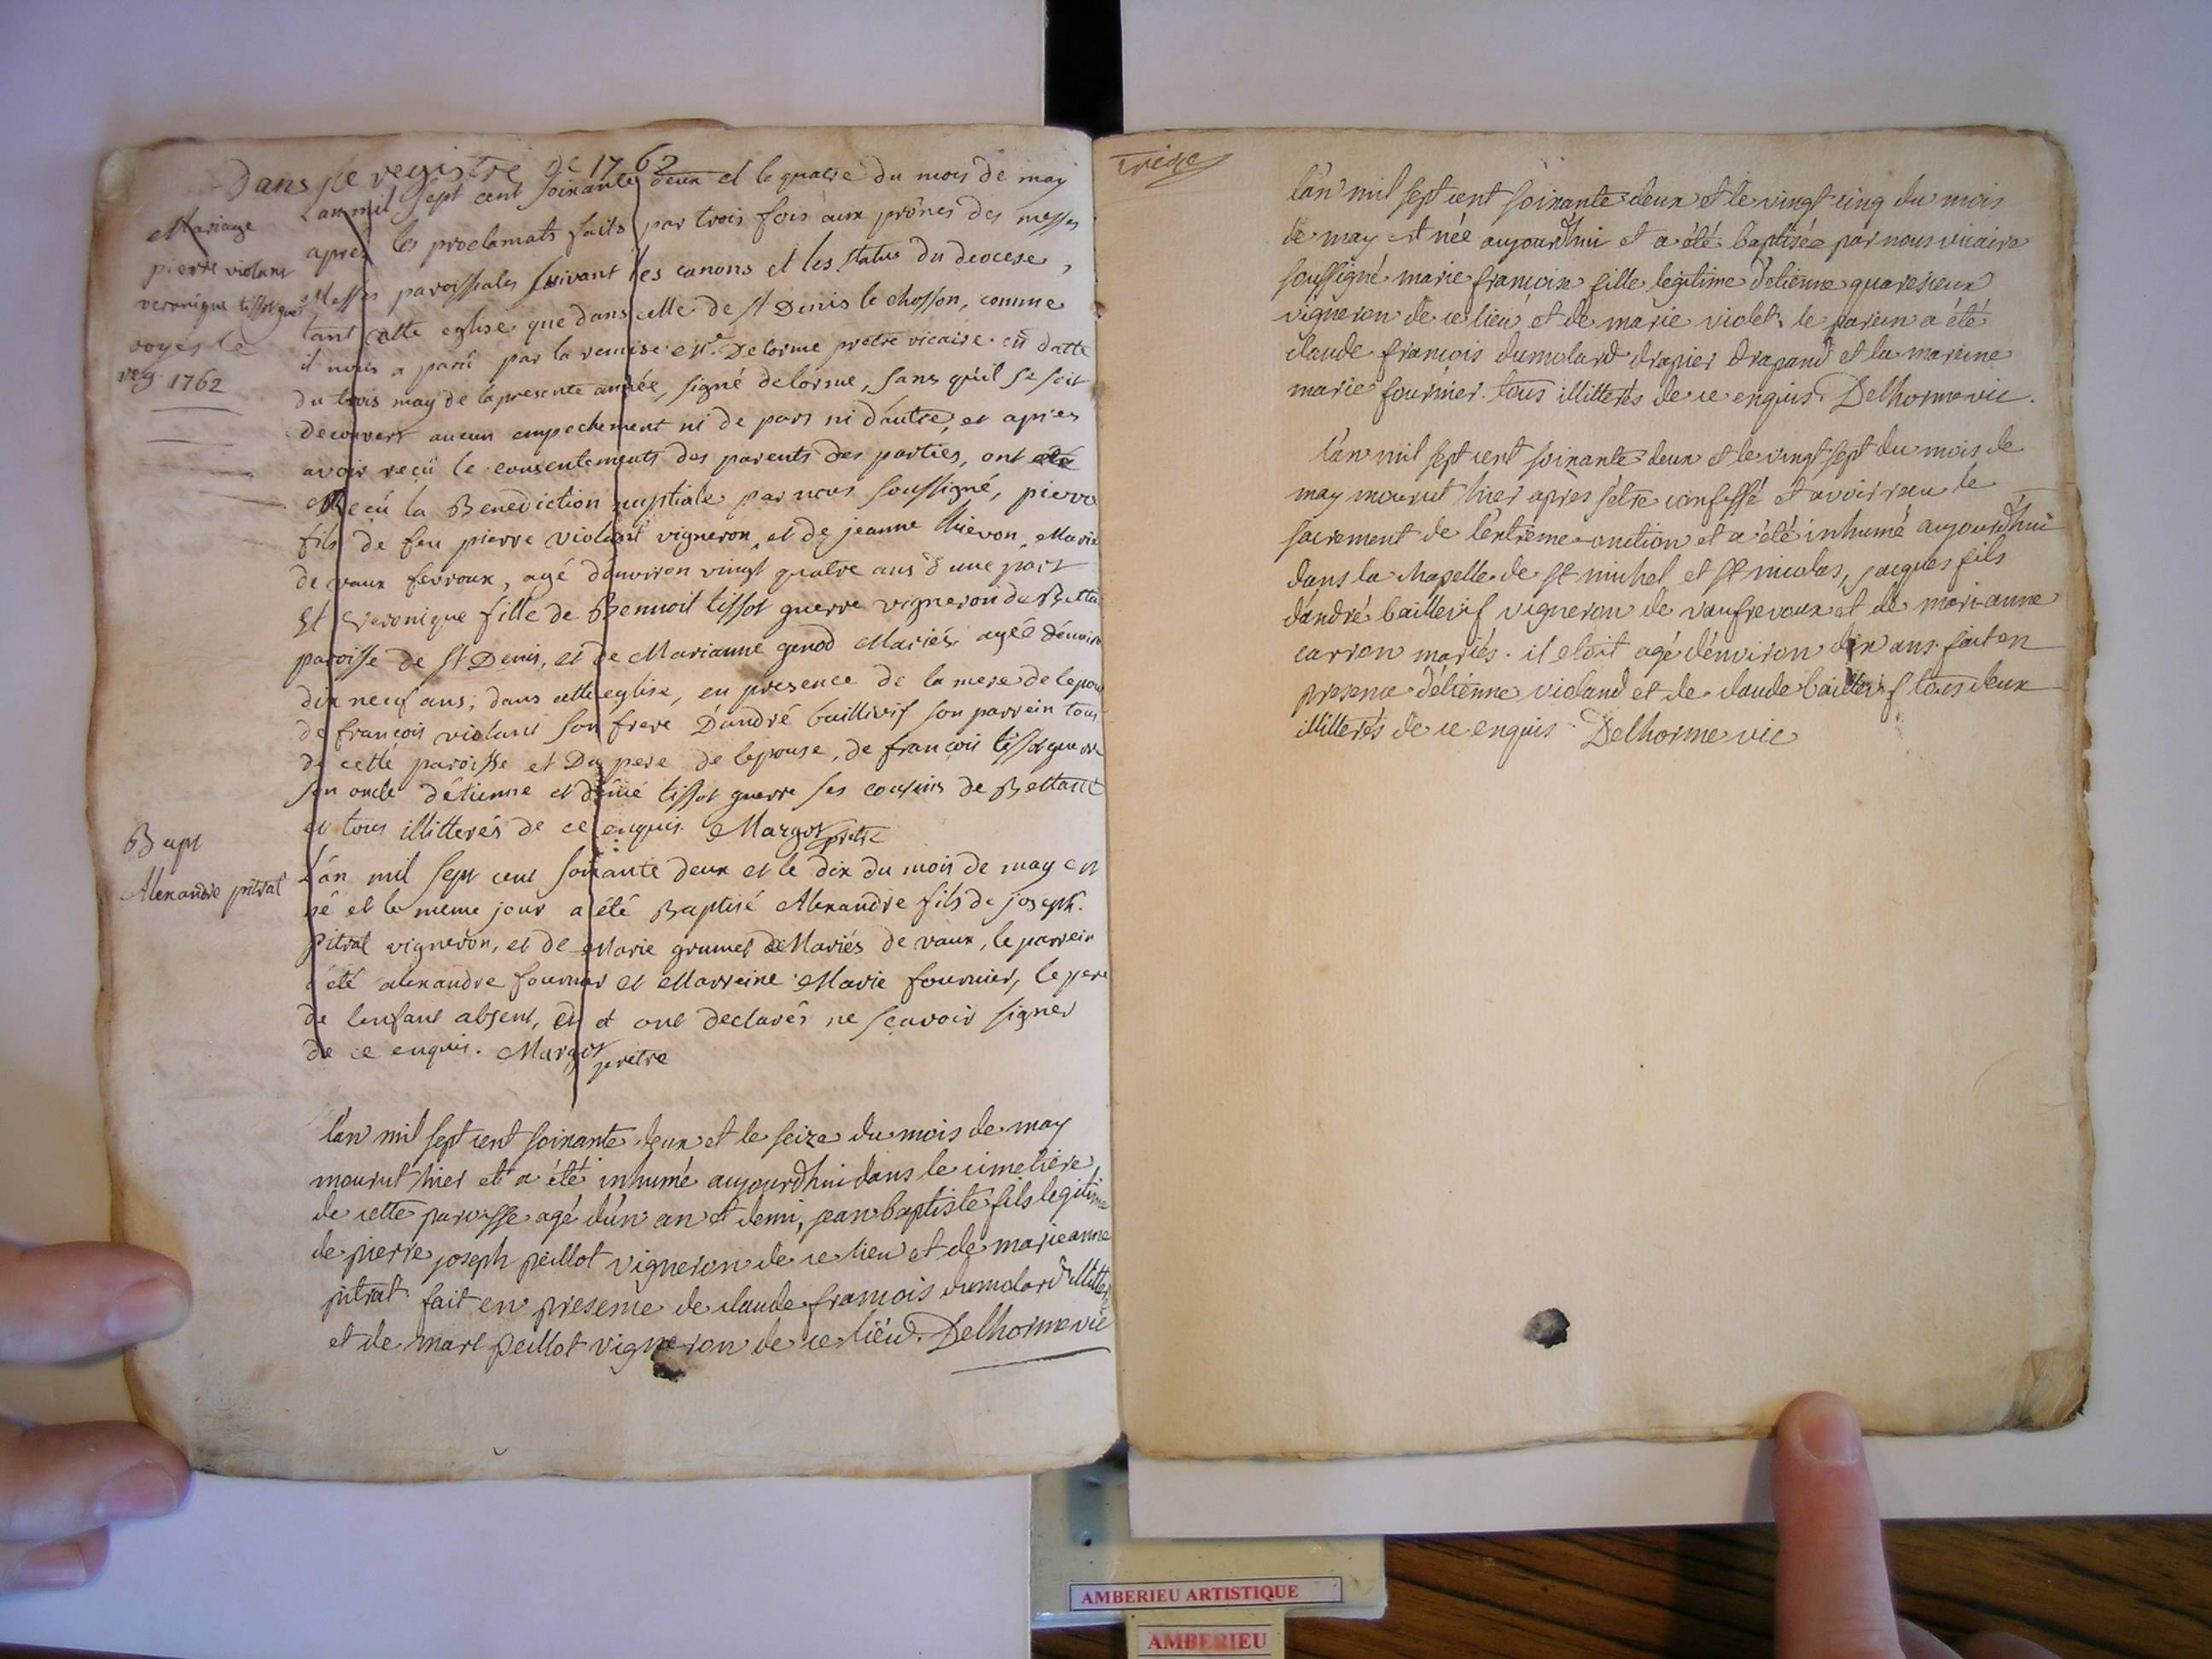 Dans le registre de 1762
Mariage
pierre violant
veronique tissot guerre
voyes le
reg. 1762
L'an mil sept cent soixante deux et le quatre du mois de may
apres les proclamats faits par trois fois aux prônes des messes
Messes paroissiales suivant les canons et les status du diocese,
tant cette eglise que dans celle de st Denis le chosson, comme
il nous a parû par la remise Delorme pretre vicaire en datte
du trois may de la presente année, signé delorme, sans qu'il se soit
decouvert aucun empechement ni de part ni d'autre, et apres
avoir reçû le consentements des parents des parties, ont été
Reçû la Benediction nuptiale par nous soussigné, pierre
fils de feu pierre violant vigneron, et de jeanne thievon, Mariés
de vaux fevroux, agé d'environ vingt quatre ans d'une part
Et veronique fille de Bennoit tissot guerre vigneron du Betta
paroisse de st Denis, et de Marianne genod Mariés agée d'environ
dix neuf ans; dans cette eglise, en presence de la mere de lepoux
de françois violant son frere D'andré baillivif son parrein tous
de cette paroisse et Du pere de lepouse, de françois tissot guerre
son oncle d'étienne et tissot guerre ses cousins de Bettant
et tous illitterés de ce enquis. Margot prêtre
Bapt
Alexandre pitrat
L'án mil sept cent soixante deux et le dix du mois de may est
né et le meme jour a été Baptisé Alexandre fils de joseph
pitrat vigneron, et de Marie grumet Mariés de vaux, le parrein
a été alexandre fournier et Marreine Marie fournier, le pere
de lenfant absent, et ont declarés ne sçavoir signer
de ce enquis. Margot prêtre
l'an mil sept cent soixante deux et le seize du mois de may
mourut hier et a été inhumé aujourdhui dans le cimetiere
de cette paroisse agé d'un an et demi, jean baptiste fils legitime
de pierre joseph peillot vigneron de ce lieu et de marieanne
pitrat. fait en presence de claude françois dumolard illitteré
et de marc peillot vigneron de ce lieu. Delhorme vic
treize
l'an mil sept cent soixante deux et le vingt cinq du mois
de may est née aujourdhui et a été baptisée par nous vicaire
soussigné marie françoise fille legitime d'etienne quaresieux
vigneron de ce lieu, et de marie violet. le parein a été
claude françois dumolard drapier drapand et la mareine
marie fournier. tous illitterés de ce enquis. Delhorme vic.
l'an mil sept cent soixante deux et le vingt sept du mois de
may mourut hier apres s'etre confessé et avoir reçu le
sacrement de l'extrême-onction et a été inhumé aujourdhui
dans la chapelle de st michel et st nicolas, jacques fils
dandré baillivif vigneron de vaufrevoux et de mari-anne
carron mariés. il etoit agé d'environ dix ans. fait en
presence d'etienne violand et de claude baillivif tous deux
illitterés de ce enquis. Delhorme vic
AMBERIEU ARTISTIQUE
AMBERIEU